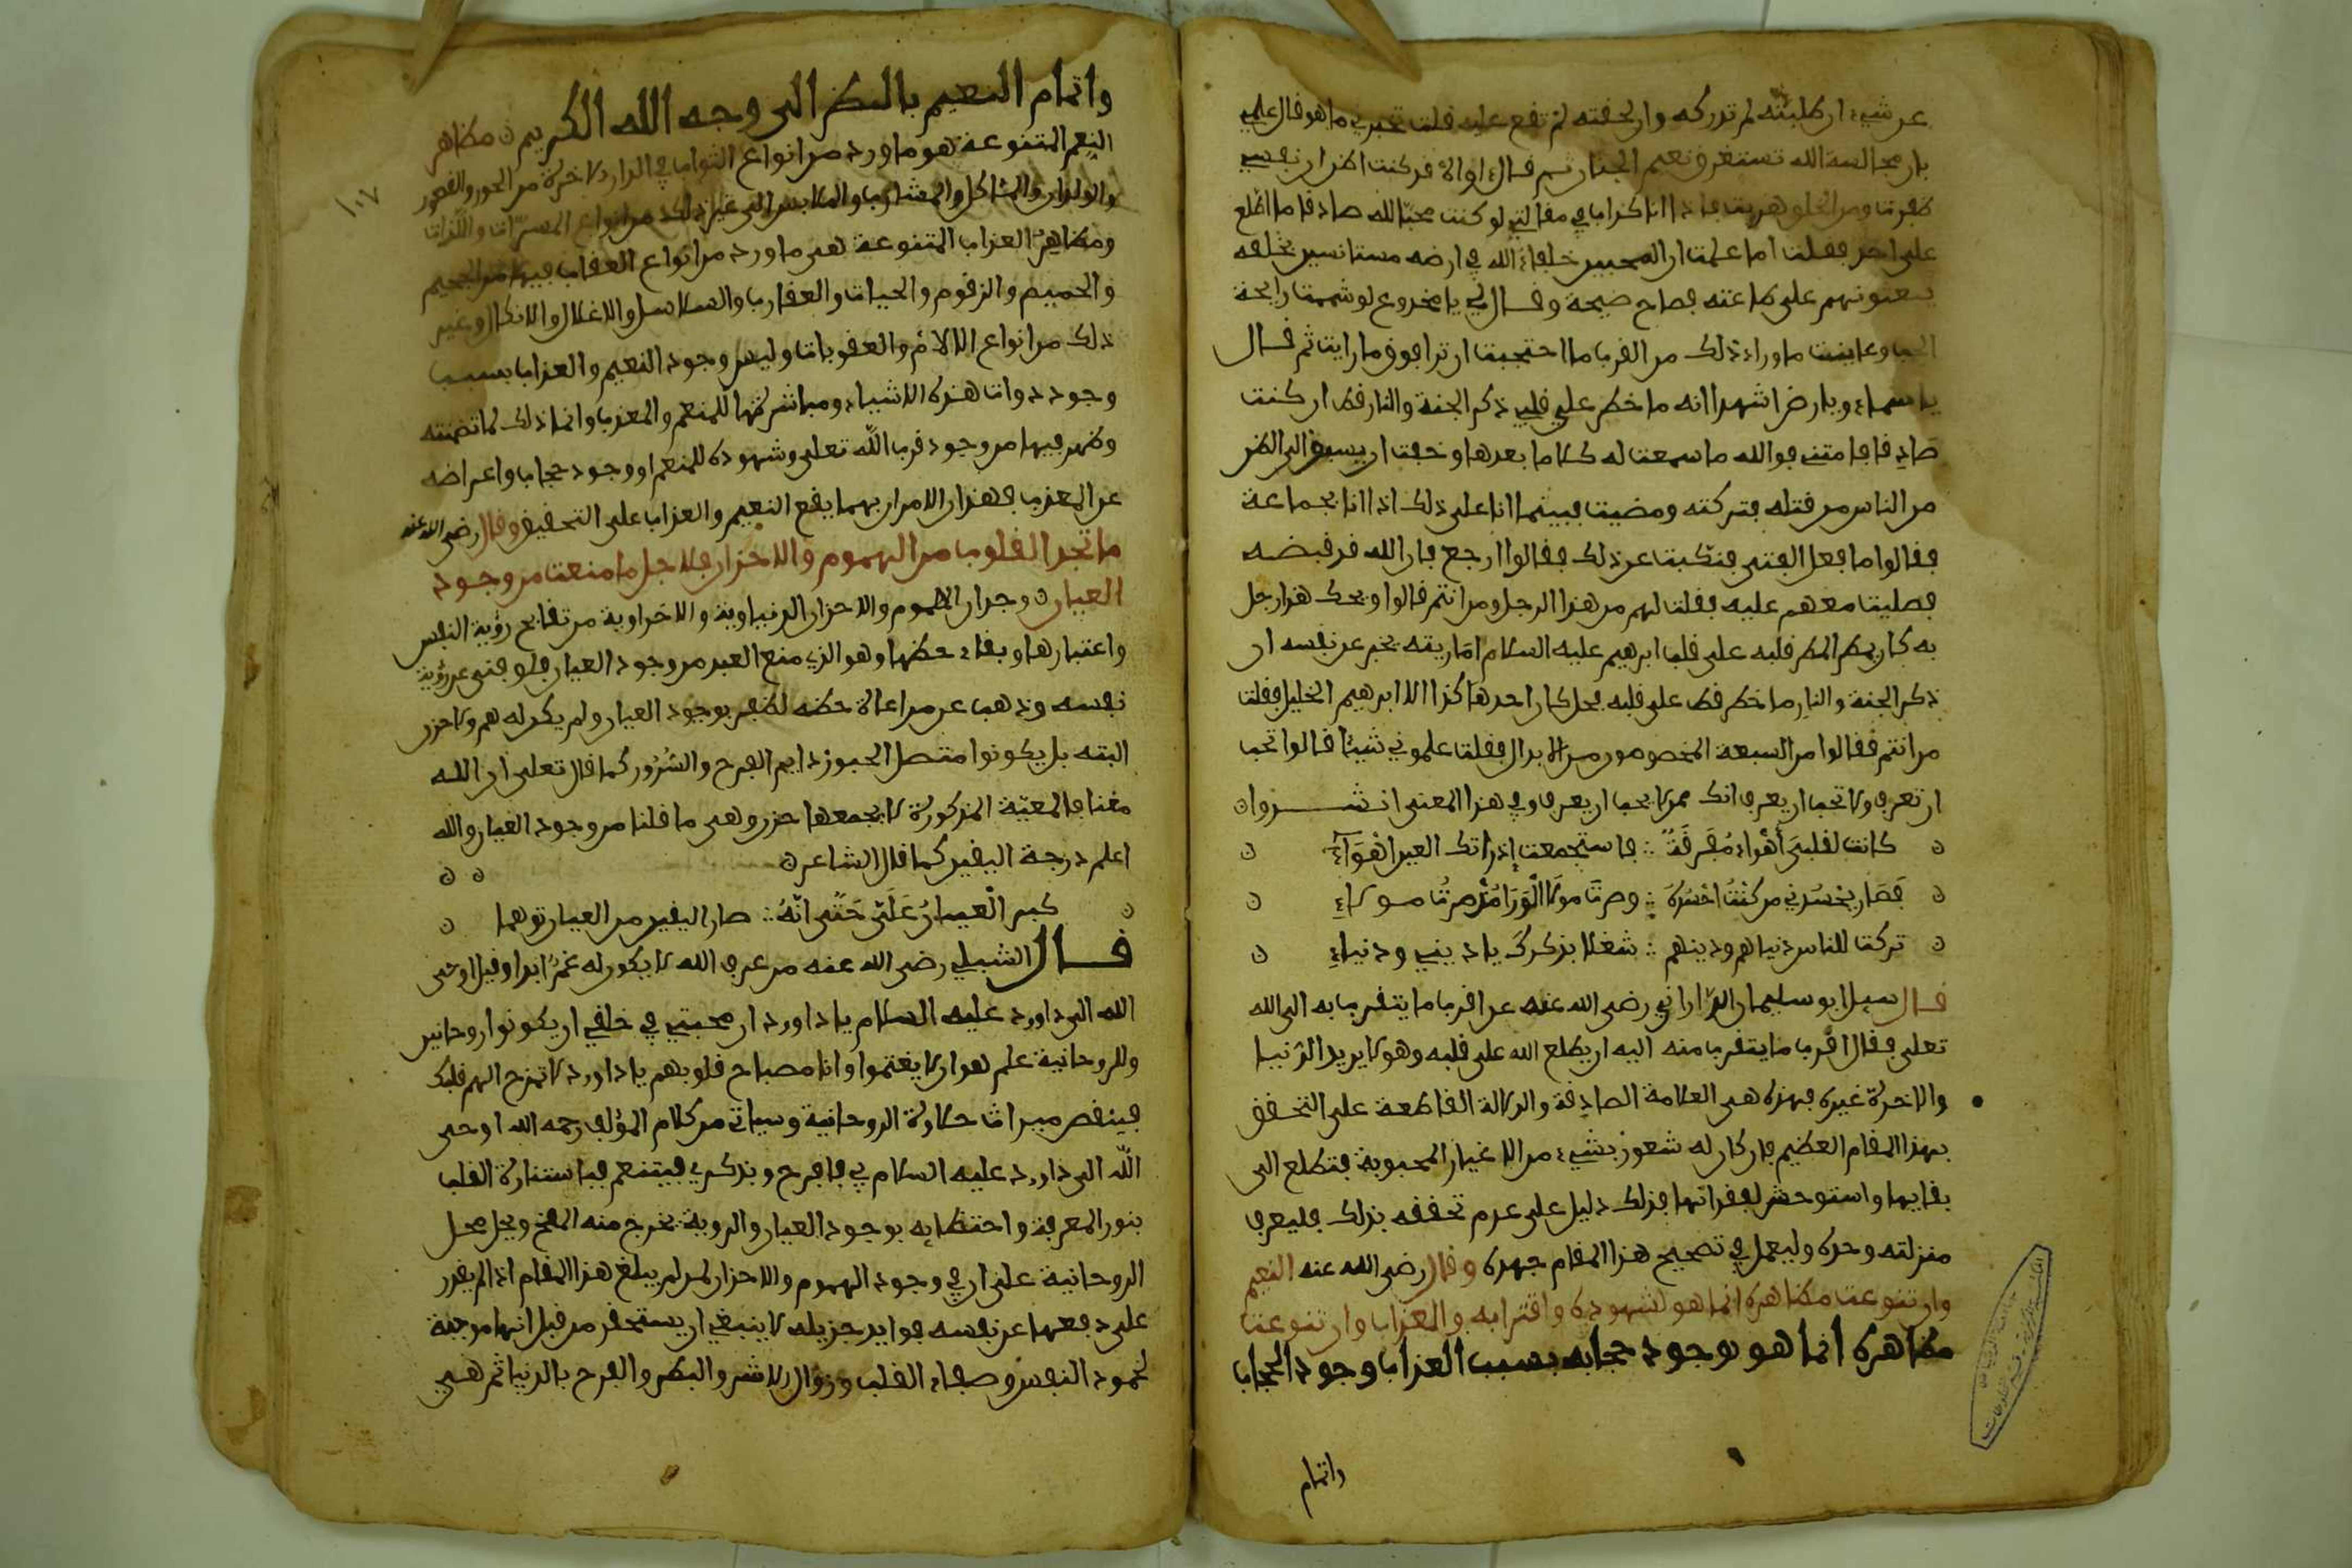 عن شيء ان طلبته لم تدركه وان لحقته لم تقع عليه قلت تخبرني ما هو قال علمي
بان مجالسة الله تستغرق نعيم الجنان ثم قال اواه قد كنت اظن ان نفسي
ظفرت ومن الخلق هربت فاذا انا كذاب في مقالتي لو كنت محبا لله صادقا ما اطلع
على احد فقلت اما علمت ان المحبين خلفاء الله في ارضه مستانسين بخلقه
يبعثونهم على طاعته فصاح صيحة وقال لي يا مخدوع لو شممت رايحة
الحب وعاين ما وراء ذلك من القرب ما احتجت ان ترا فوق ما رايت ثم قال
يا سماء ويا رض اشهدا انه ما خطر على قلبي ذكر الجنة والنار قط ان كنت
صادقا فامتني فوالله ما سمعت له كلاما بعدها وخفت ان يسبق الى الظن
من الناس من قتله فتركته ومضيت فبينما انا على ذلك اذا انا بجماعة
فقالوا ما فعل الفتى فنكبت عن ذلك فقالوا ارجع فان الله قد قبضه
فصليت معهم عليه فقلت لهم من هذا الرجل ومن انتم قالوا ويحك هذا رجل
به كان يمطر المطر قلبه على قلب ابرهيم عليه السلام اما رايته يخبر عن نفسه ان
ذكر الجنة والنار ما خطر قط على قلبه فهل كان احد هاكذا الا ابرهيم الخليل فقلت
من انتم فقالوا من السبعة المخصوصون من الابدال فقلت علموني شيئا قالوا لا تحب
ان تعرف ولا تحب ان يعرف انك ممن لا يحب ان يعرف وفي هذا المعنى انشدوا
كانت لقلبي أهواء مفرقة فاستجمعت إذ راتك العين اهوآءي
فصار يحسدني من كنت احسده وصرت مولا الورا مذ صرت مولاءي
تركت للناس دنياهم ودينهم شغلا بذكرك يا ديني ودنياءي
قال سيل ابو سليمان الداراني رضي الله عنه عن اقرب ما يتقرب به الى الله
تعلى فقال اقرب ما يتقرب منه اليه ان يطلع الله على قلبه وهو لا يريد الدنيا
والاخرة غيره فهذه هي العلامة الصادقة والدلالة القاطعة على التحقق
بهذا المقام العظيم فان كان له شعور بشيء من الاغيار المحبوبة فتطلع الى
بقايها واستوحش لفقدانها فذلك دليل على عدم تحققه بذلك فليعرف
منزلته وحده وليعمل في تصحيح هذا المقام جهده وقال رضي الله عنه النعيم
وان تنوعت مظاهره انما هو لشهوده واقترابه والعذاب وان تنوعت
مظاهره انما هو لوجود حجابه بسبب العذاب وجود الحجاب
واتمام
١٠٧
واتمام النعيم بالنظر الى وجه الله الكريم مظاهر
النعم المتنوعة هو ما ورد من انواع الثواب في الدار الاخرة من الحور والقصور
والولدان والمئاكل والمشارب والملابس الى غير ذلك من انواع المسرات واللذات
ومظاهر العذاب المتنوعة هي ما ورد من انواع العقاب فيها من الجحيم
والحميم والزقوم والحيات والعقارب والسلاسل والاغلال والانكال وغير
ذلك من انواع الالام والعقوبات وليس وجود النعيم والعذاب بسبب
وجود ذوات هذه الاشياء ومباشرتها للمنعم والمعذب وانما ذلك لما تضمنته
وظهر فيها من وجود قرب الله تعلى وشهوده للمنعم او وجود حجاب واعراضه
عن المعذب فهذان الامران بهما يقع النعيم والعذاب على التحقيق وقال رضي الله عنه
ما تجد القلوب من الهموم والاحزان فلاجل ما منعت من وجود
العيان وجدان الهموم والاحزان الدنياوية والاخراوية من نتايج رؤية النفس
واعتبارها وبقاء حظها وهو الذي منع العبد من وجود العيان فلو فني عن رؤية
نفسه وذهب عن مراعاة حظه لظفر بوجود العيان ولم يكن له هم ولا حزن
البته بل يكونوا متصل الحبور دايم الفرح والسرور كما قال تعلى ان الله
معنا فالمعية المذكورة لا يجمعها حزن وهي ما قلنا من وجود العيان والله
اعلم درجة اليقين كما قال الشاعر
كبر العيان على حتى انه صار اليقين من العيان توهما
قال الشبلي رضي الله عنه من عرف الله لا يكون له غم ابدا وقيل اوحى
الله الى داورد عليه السلام يا داورد ان محبتي في خلقي ان يكونوا روحانين
وللروحانية علم هو ان لا يغتموا وانا مصباح قلوبهم يا داورد لا تمزج الهم قلبك
فينقص ميراث حلاوة الروحانية وسياتي من كلام المؤلف رحمه الله اوحى
الله الى داورد عليه السلام بي فافرح وبذكري فيتنعم فباستنارة القلب
بنور المعرفة واحتظايه بوجود العيان والروية يخرج منه الهم ويحل محل
الروحانية على ان في وجود الهموم والاحزان لمن لم يبلغ هذا المقام اذا لم يقدر
على دفعها عن نفسه فوايد جزيله لا ينبغي ان يستحقر من قبل انها موجبة
لخمود النفس وصفاء القلب وزوال الاشر والبطر والفرح بالدنيا ثم هي